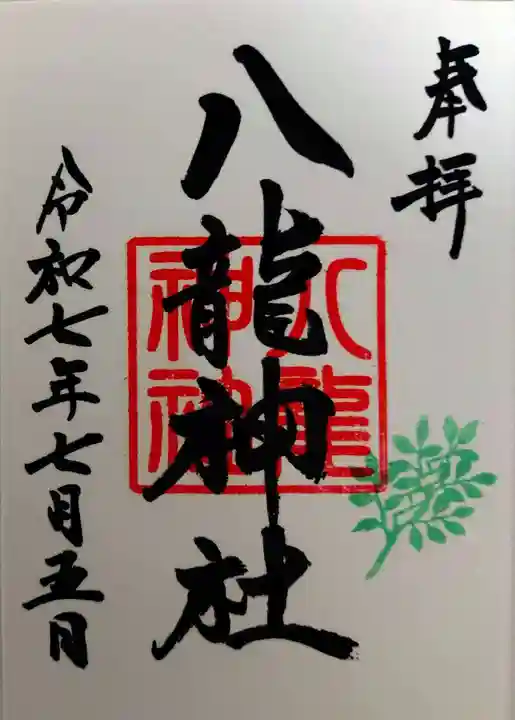 奉拝
八龍神社
八龍神社
令和七年七月五日